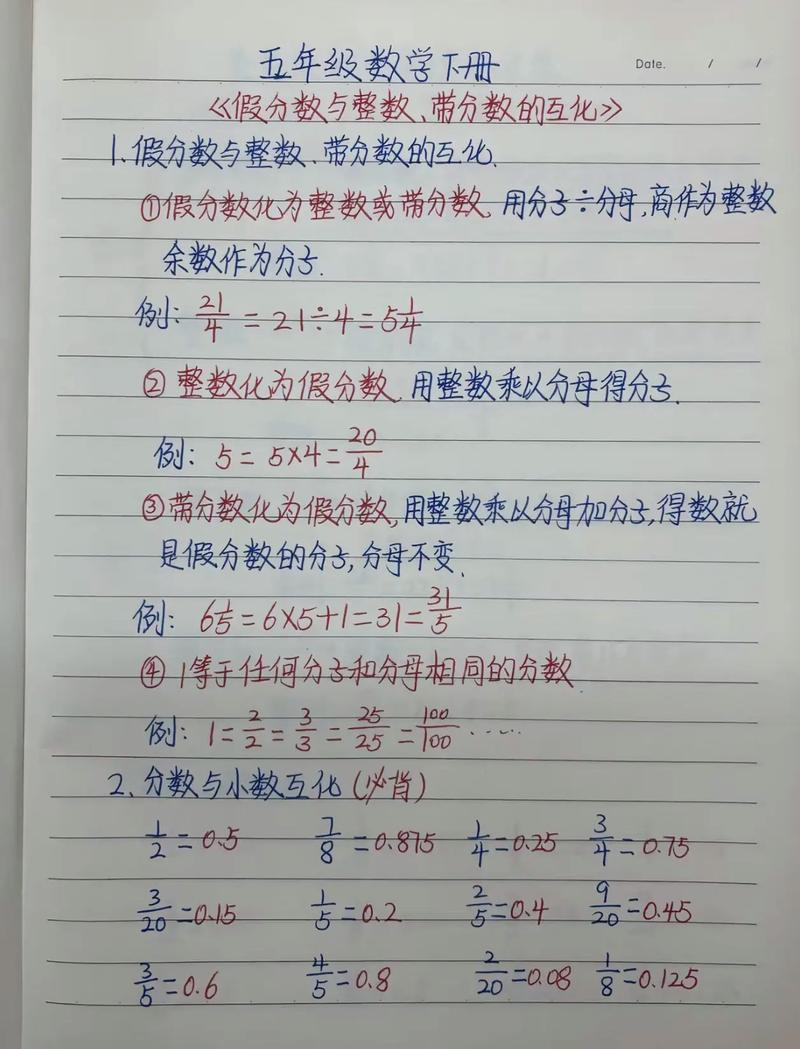 五年级数学下册
Date. / /
《假分数与整数、带分数的互化》
1、假分数与整数、带分数的互化.
①假分数化为整数或带分数, 用分子÷分母,商作为整数
余数作为分子.
例: 21/4 = 21÷4 = 5 1/4
② 整数化为假分数, 用整数乘以分母得分子.
例: 5 = 5×4 = 20/4
③带分数化为假分数,用整数乘以分母加分子,得数就
是假分数的分子,分母不变、
例: 6 1/5 = 6×5+1 = 31 = 31/5
④ 1等于任何分子和分母相同的分数
例: 1 = 2/2 = 3/3 = 25/25 = 100/100 ……
2、分数与小数互化(必背)
1/2 = 0.5 7/8 = 0.875 1/4 = 0.25 3/4 = 0.75
3/20 = 0.15 1/5 = 0.2 2/5 = 0.4 9/20 = 0.45
3/5 = 0.6 4/5 = 0.8 2/20 = 0.08 1/8 = 0.125